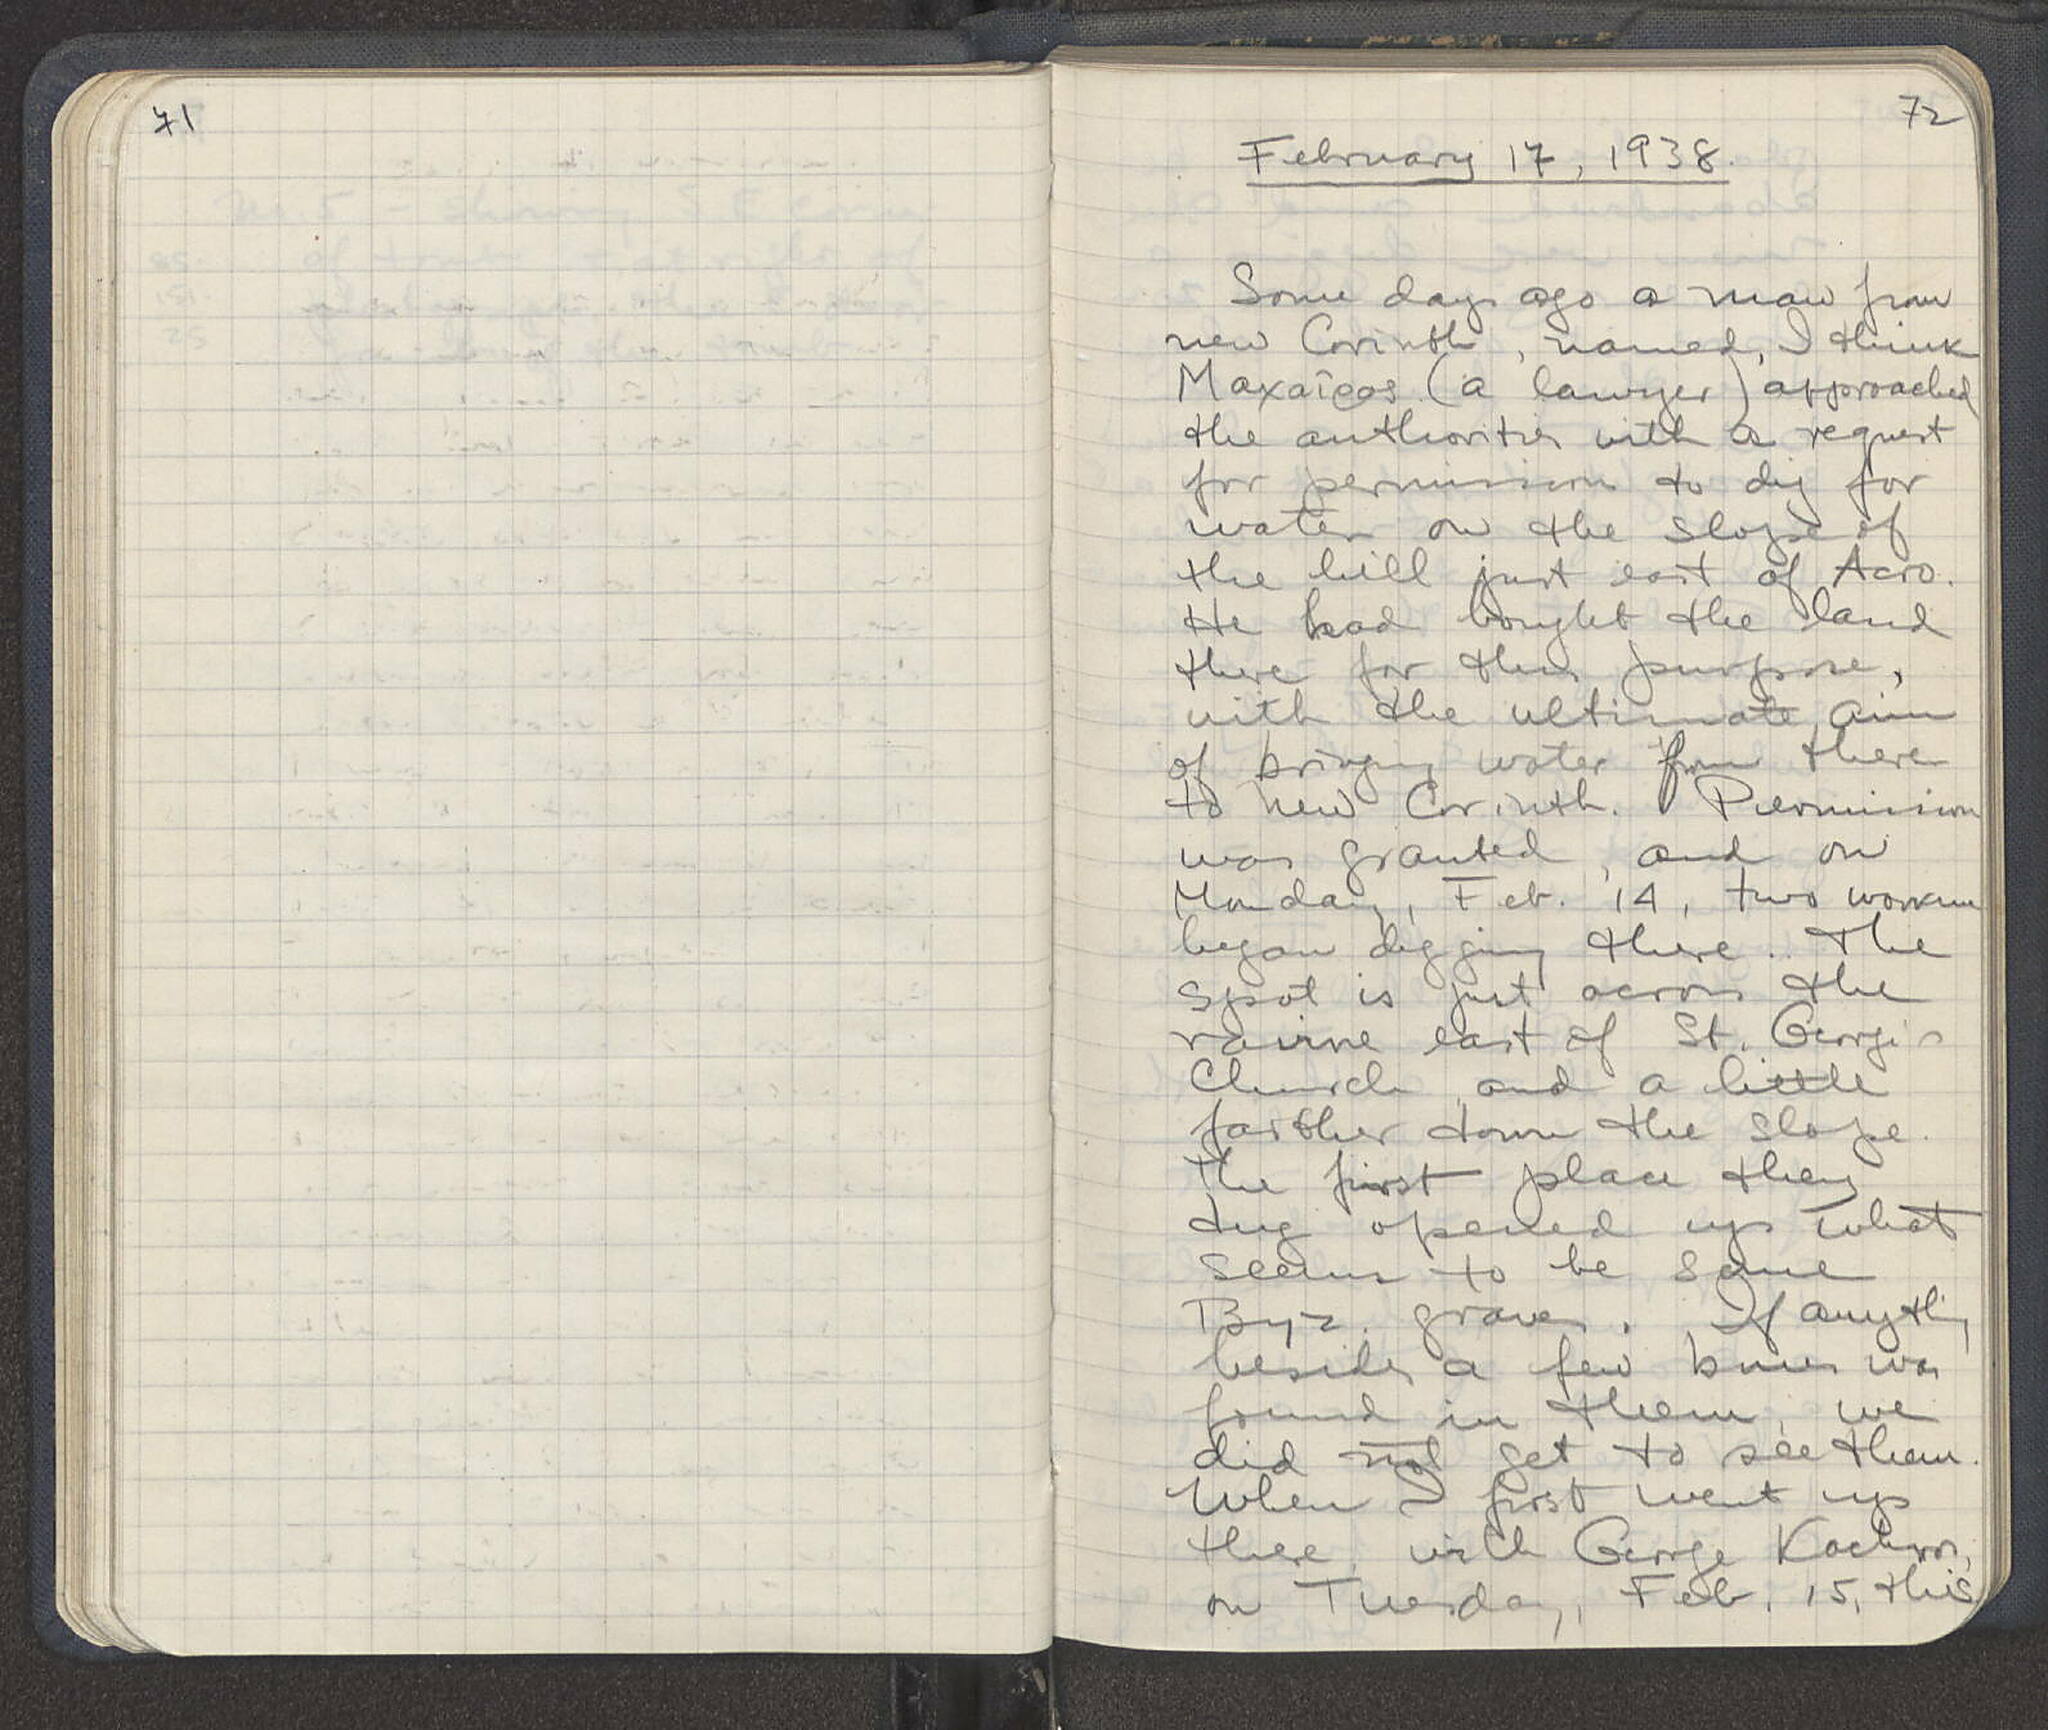 71
72
February 17, 1938.
Some days ago a man from
new Corinth, named, I think
(a lawyer) approached
the authorities with a request
for permission to dig for
water on the slope of
the hill just east of Acro.
He had bought the land
there for this purpose,
with the ultimate aim
of bringing water from there
to new Corinth. Permission
was granted, and on
Monday, Feb. 14, two workmen
began digging there. The
spot is just across the
ravine east of St. George's
Church and a little
farther down the slope.
The first place they
dug opened up what
seems to be some
Byz. graves. If anything
besides a few bones was
found in them, we
did not get to see them.
When I first went up
there, with George
on Tuesday, Feb. 15, this